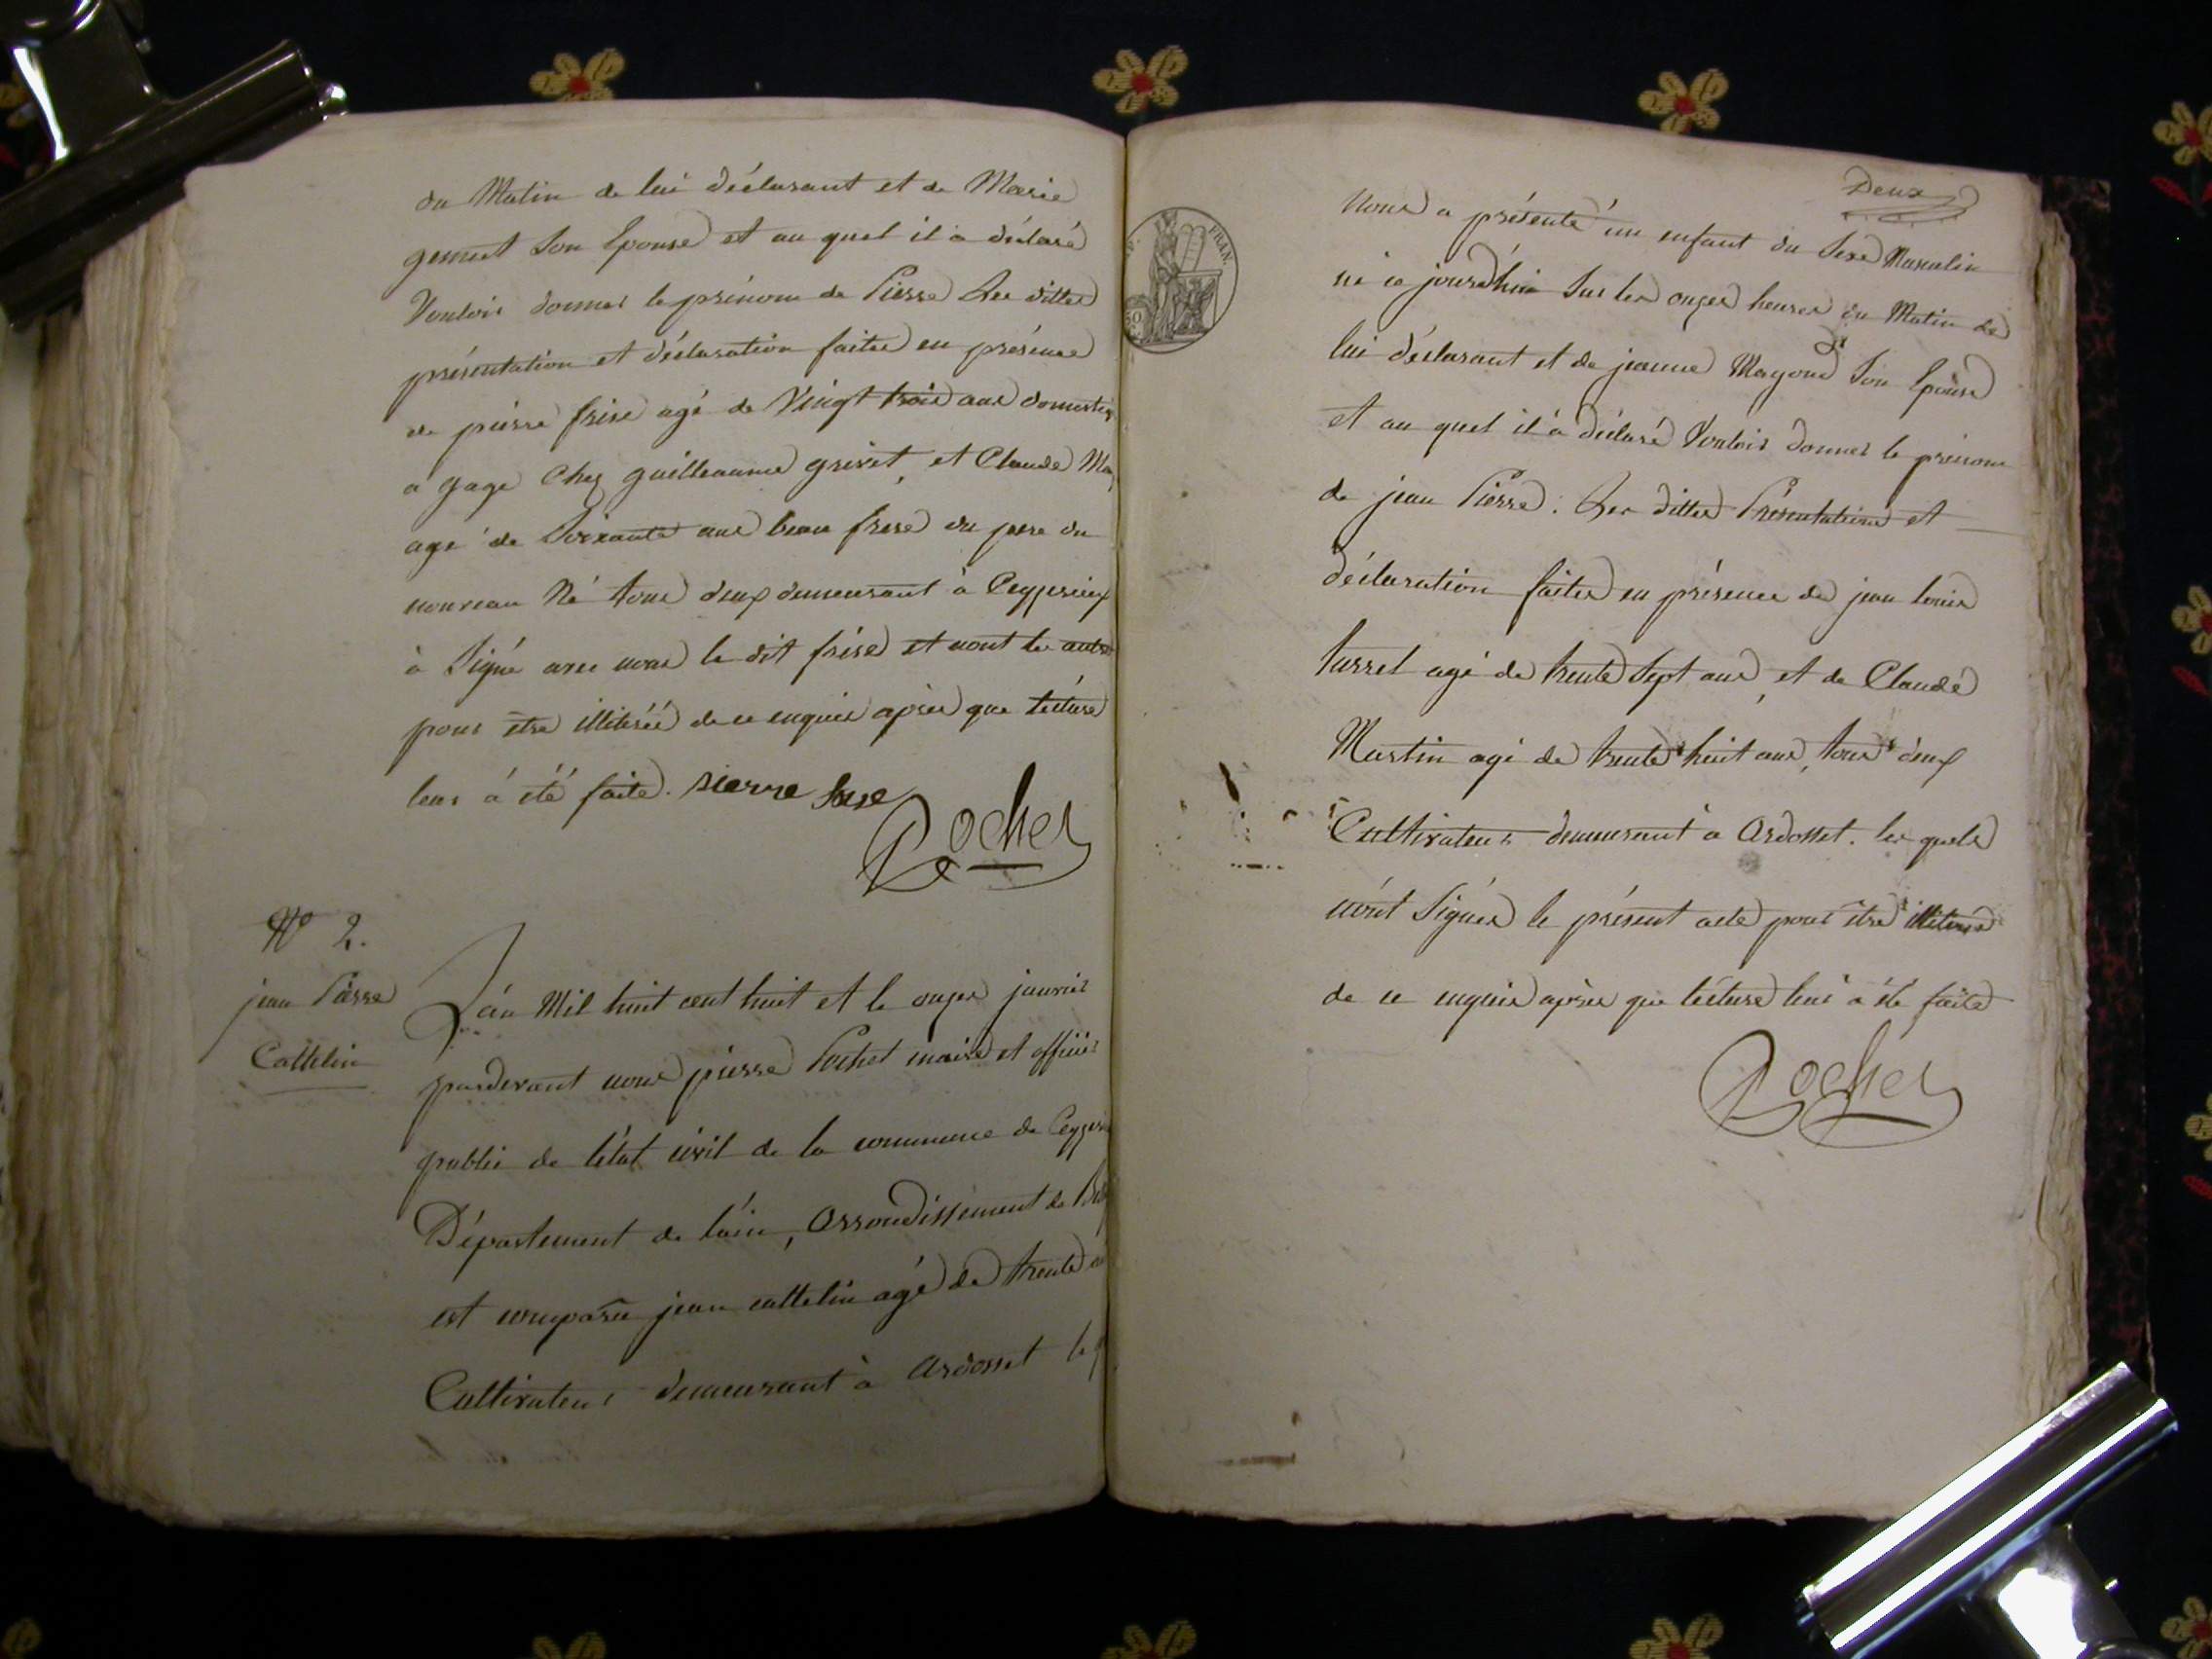 du Matin de lui déclarant et de Marie
gesnet Son Epouse et au quel il à déclaré
Vouloir donner le prénom de Pierre Les dittes
présentation et déclaration faites en présence
de pierre frise agé de Vingt trois ans domestiq
a gage Chez guilleaume grivet, et Claude Ma
agé de Soixante ans beau frere du pere du
nouveau Né tous deux demeurant à Ceyzerieux
à Signé avec nous le dit frise et nont les autre
pour être illiterée de ce enquis après que lécture
leur à été faite. pierre
Rochet
Nº 2.
jean Pierre
Cattelin
Lán Mil huit cent huit et le onze janvier
pardevant nous pierre Rochet maire et officier
public de létat civil de la commune de Ceyzeri
Département de láin, Arrondissement de
est comparu jean cattelin agé de trente
Cultivateur demeurant à Ardosset
Deux
Nous a présenté un enfant du Sexe Masculin
né ce jourdhui Sur les onzes heures du Matin de
lui déclarant et de jeanne Mayond Son Epouse
et au quel il à déclaré Vouloir donner le prénom
de jean Pierre. Les dittes Présentations et
déclaration faites en présence de jean louis
turrel agé de trente Sept ans, et de Claude
Martin agé de trente huit ans, tous deux
Cultivateurs demeurant à Ardosset. les quels
nónt Signés le présent acte pour être illiterés
de ce enquis après que lécture leur à été faite
Rochet
FRAN.
50